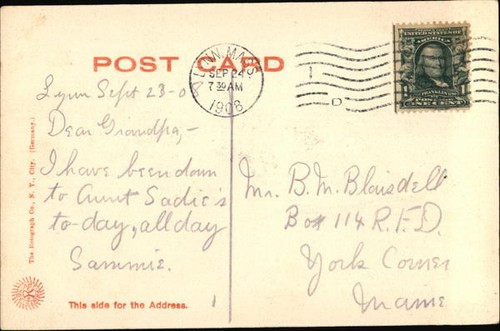 POST CARD
LYNN, MASS.
SEP 24
7 30 AM
1908
1
D
UNITED STATES OF AMERICA
FRANKLIN
1 1
ONE CENT
Lynn Sept 23-0
Dear Grandpa,-
I have been down
to Aunt Sadie's
to-day, all day
Sammie.
Mr. B. M. Blaisdell
Box 114 R.F.D.
York Corner
Maine
The Rotograph Co., N. Y. City. (Germany.)
This side for the Address.
1